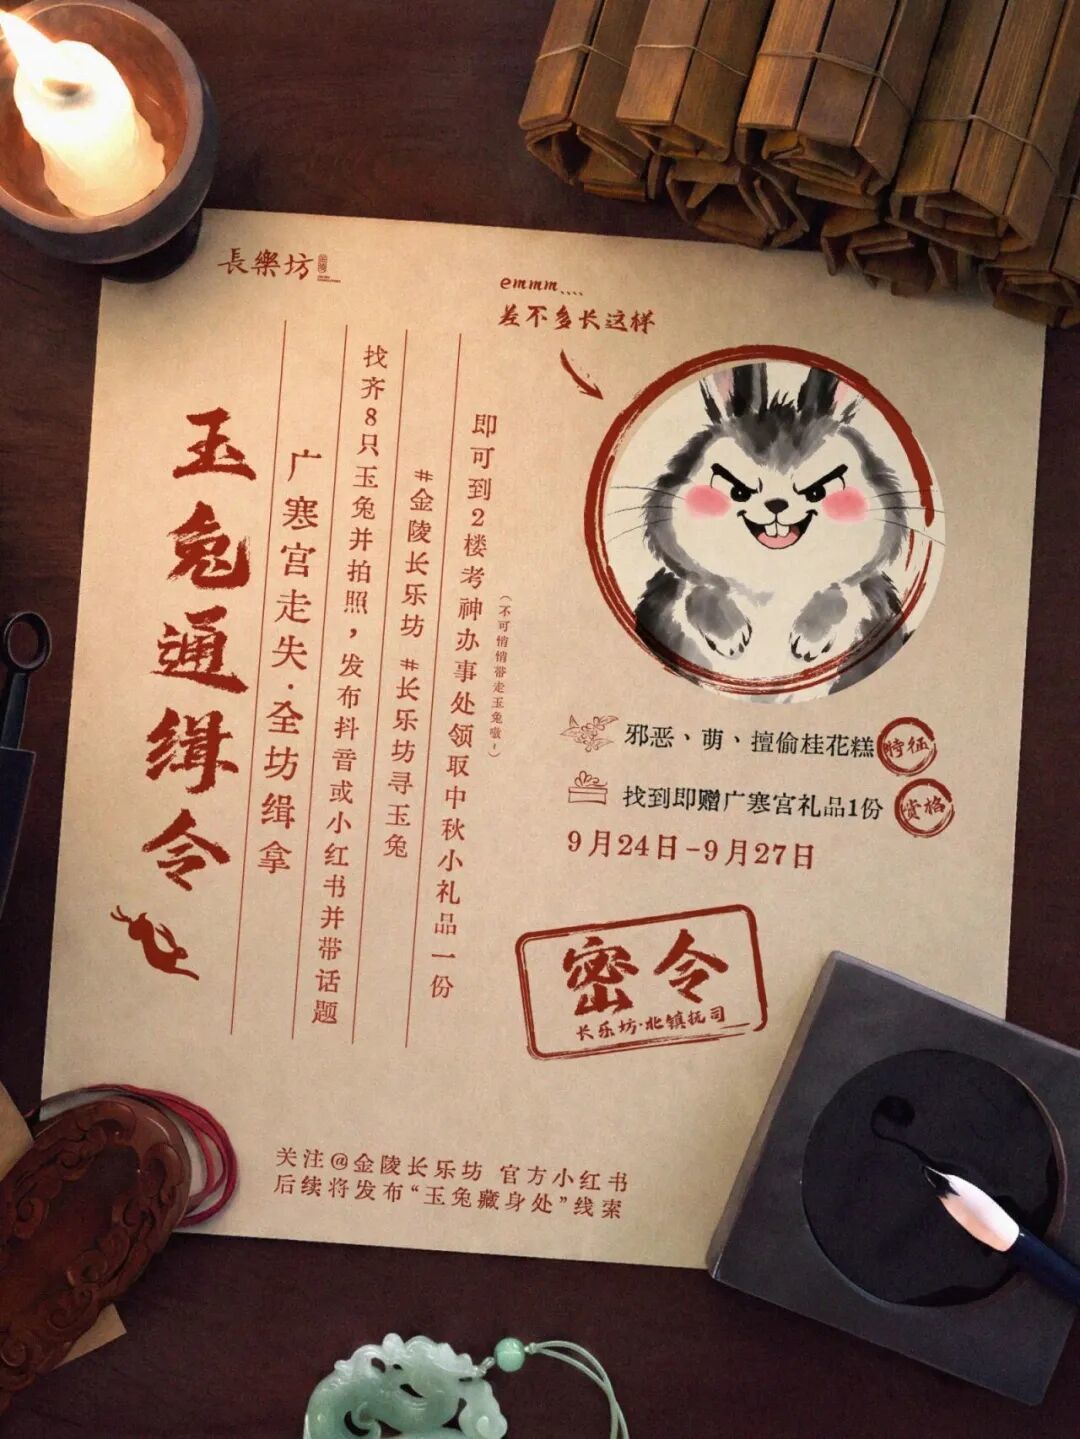 長樂坊
emmm、、、、
差不多长这样
玉兔通缉令
广寒宫走失·全坊缉拿
找齐8只玉兔并拍照，发布抖音或小红书并带话题
#金陵长乐坊 #长乐坊寻玉兔
即可到2楼考神办事处领取中秋小礼品一份
（不可悄悄带走玉兔嗷~）
邪恶、萌、擅偷桂花糕
特征
找到即赠广寒宫礼品1份
赏格
9月24日-9月27日
密令
长乐坊·北镇抚司
关注@金陵长乐坊 官方小红书
后续将发布“玉兔藏身处”线索